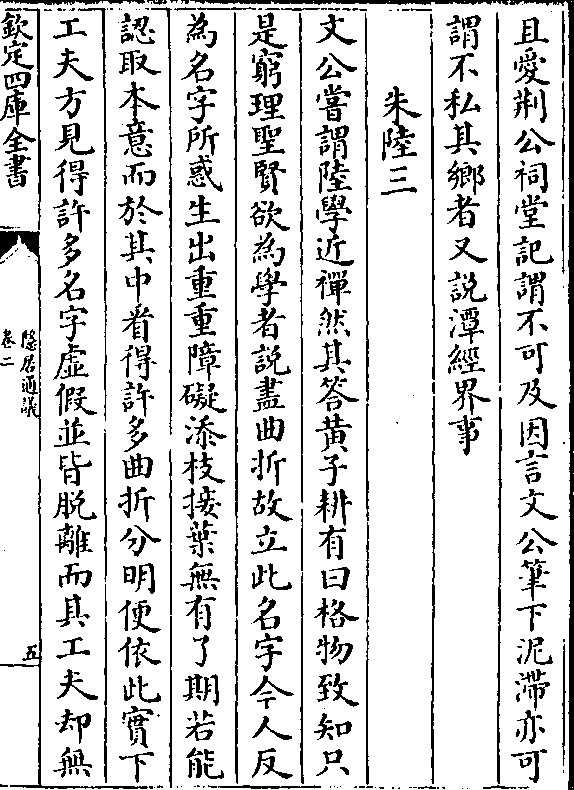 且愛荆公祠堂記謂不可及因言文公筆下泥滯亦可
謂不私其鄉者又説潭經界事
朱陸三
文公嘗謂陸學近禪然其答黄子耕有曰格物致知只
是窮理聖賢欲為學者說盡曲折故立此名字今人反
為名字所惑生出重重障礙添枝接葉無有了期若能
認取本意而於其中看得許多曲折分明便依此實下
工夫方見得許多名字虛假並皆脱離而其工夫却無
欽定四庫全書
隠居通議
卷二
五